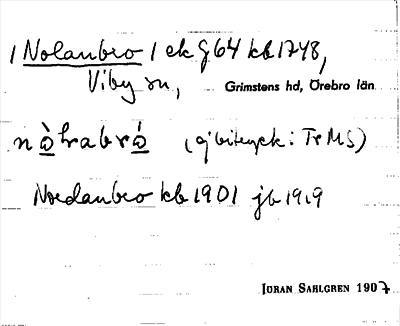 / Nolanbro / ek g 64 kb 1748,
Viby sn,
Grimstens hd, Örebro län
nå̀ɫrabrå̀ (ej bitryck: Tr MS)
Nordanbro kb 1901 jb 1919
JÖRAN SAHLGREN 1907